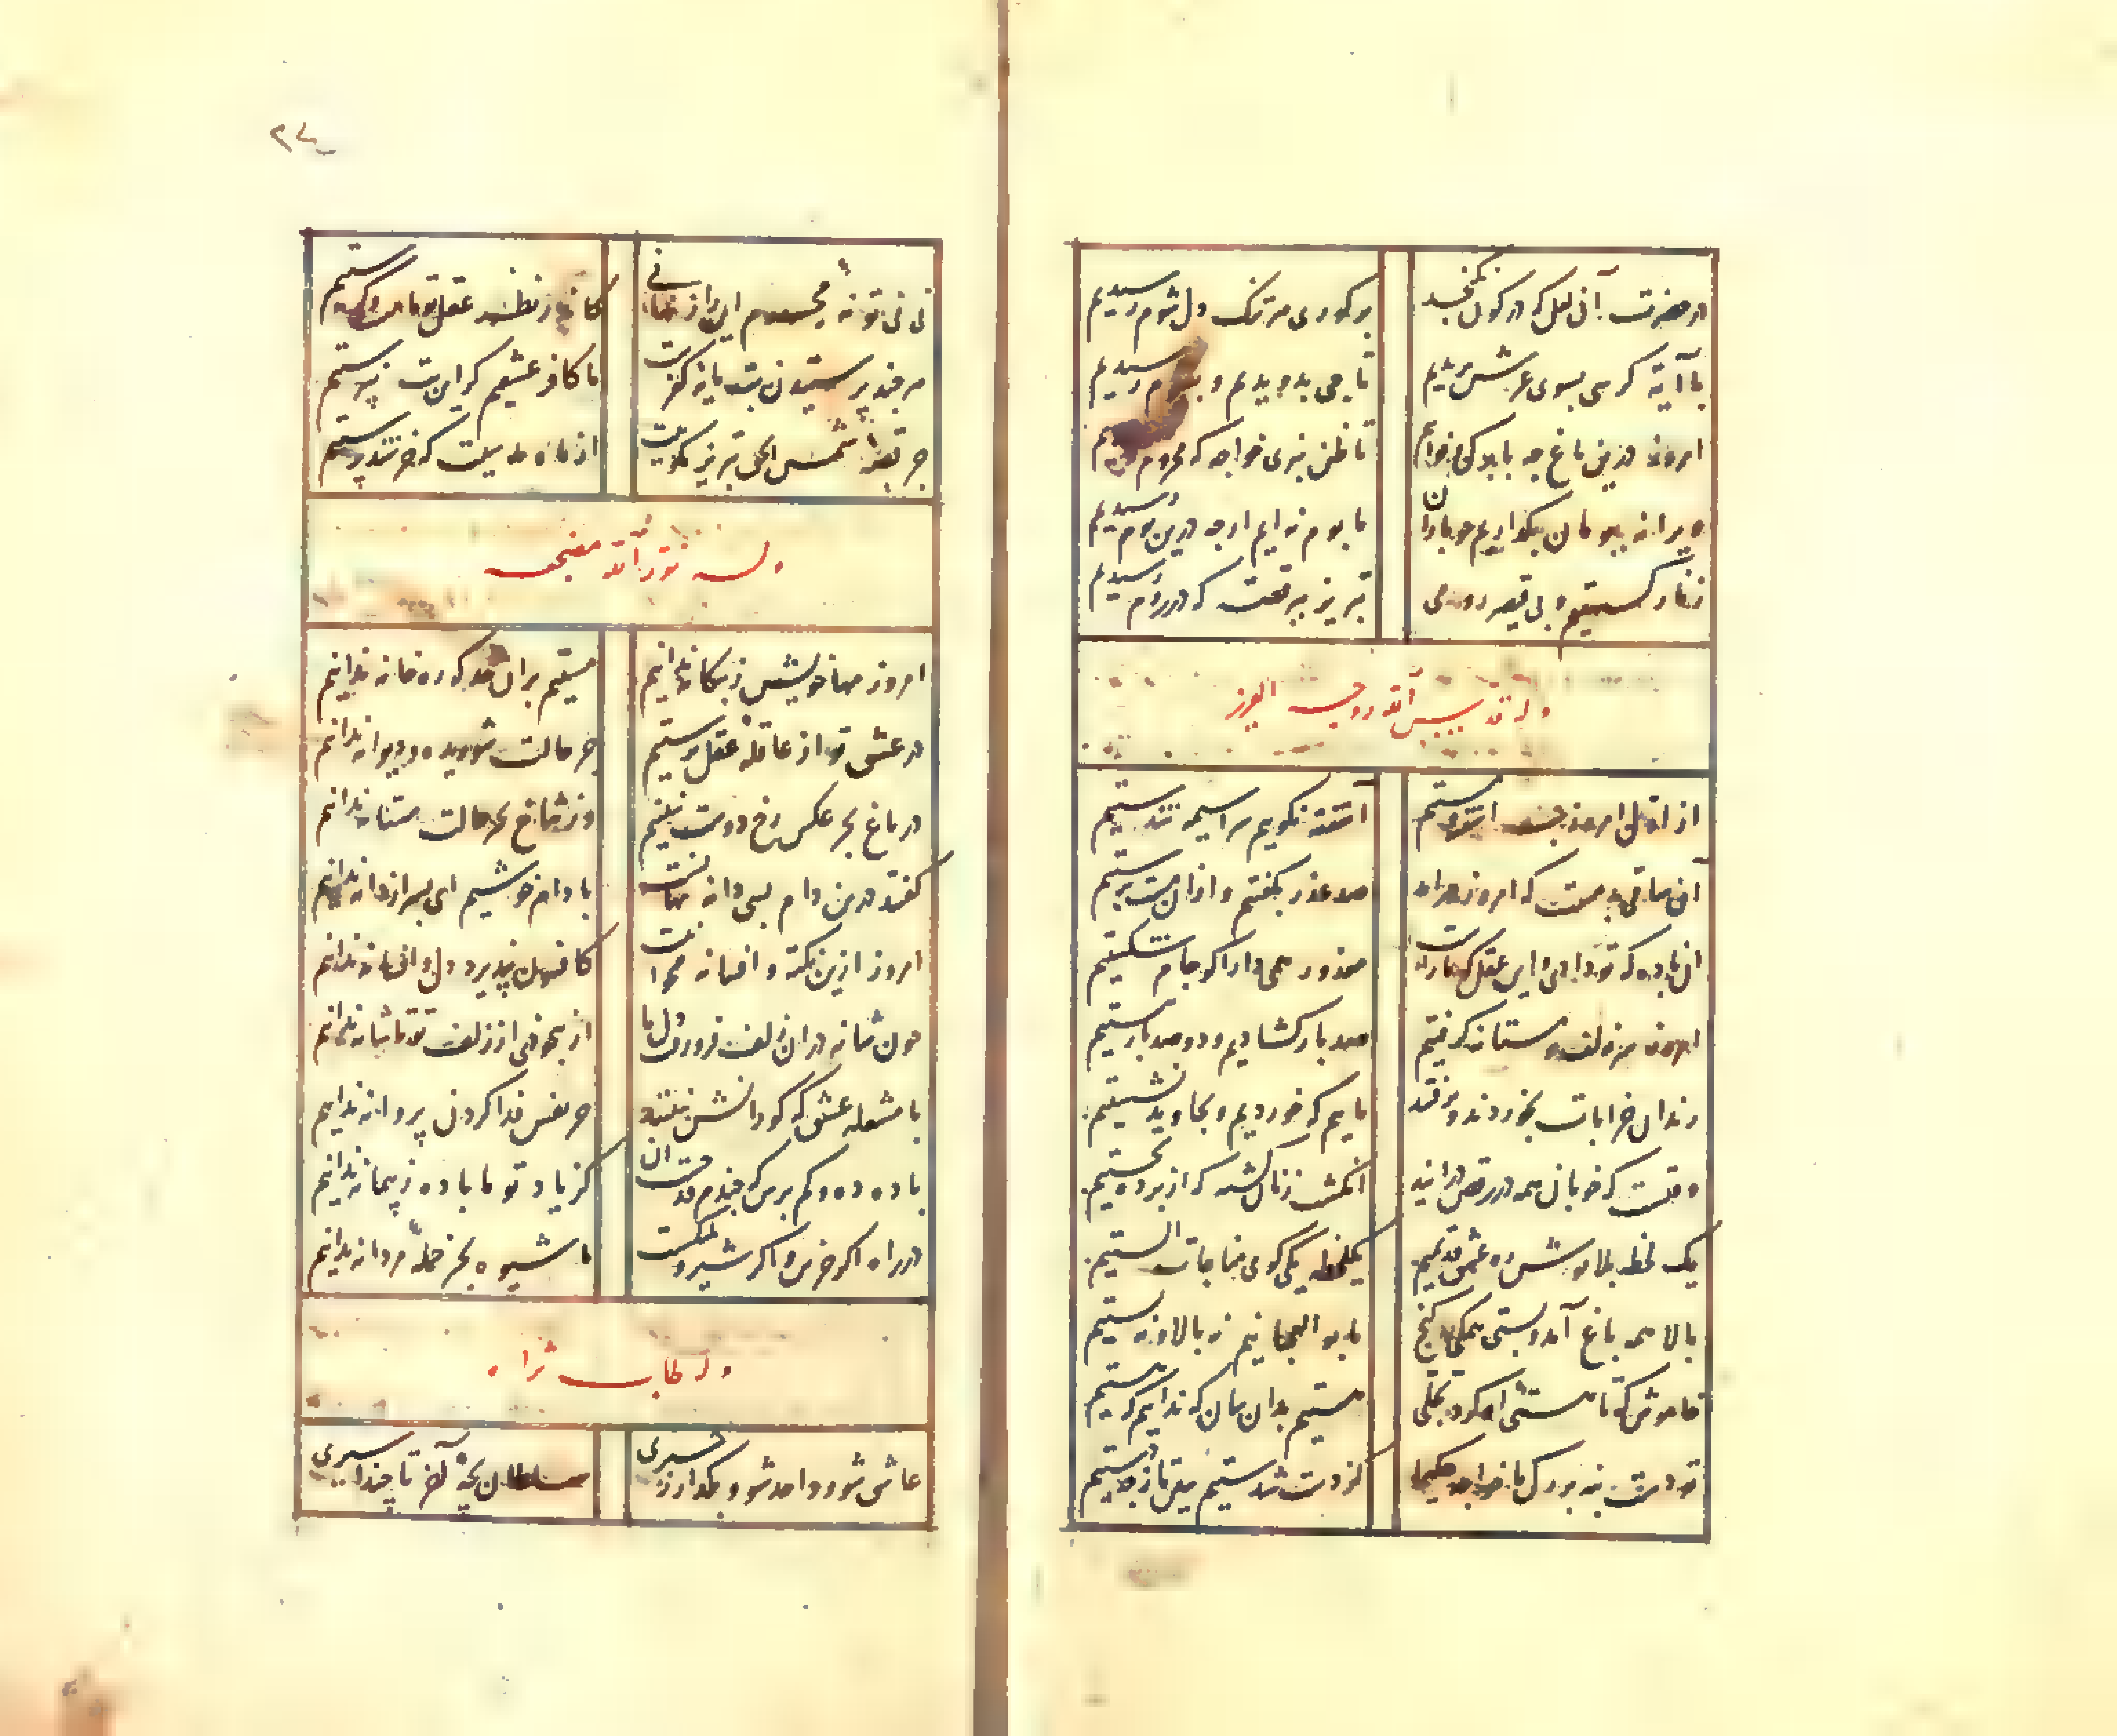 در حضرت آن لعل که در کون نگنجد
بر کوری هر سنگ دل شوم رسیدیم
با آیة کرسی بسوی عرش پریدیم
تا حی بدویدیم و بقیوم رسیدیم
امروز درین باغ چه با برک و نوایم
تا ظن نبری خواجه که محروم رسیدیم
ویرانه ببومان بگذاریم چو بازان
ما بوم نه ایم ارچه درین بوم رسیدیم
زنار گسستیم بر قیصر رومی
تبریز ببر قصه که در روم رسیدیم
وله قدس الله روحه العزیز
از اول امروز چو آشفته و مستیم
آشفته نکوییم سراسیمه شدستیم
آن ساقی بدمست که امروز درآمد
صد عذر بکفتم و از آن مست نرستیم
آن باده که تو دادی و این عقل که ماراست
معذور همی دار اگر جام شکستیم
امروز سر زلف تو مستانه گرفتیم
صد بار گشادیم و دو صد بار ببستیم
رندان خرابات بخوردند و برفتند
ماییم که خوردیم و بجاوید نشستیم
وقتست که خوبان همه در رقص درآیند
انگشت زنان گشته که از پرده بجستیم
یک لحظه بلانوش ره عشق قدیمیم
یک لحظه بلی گوی مناجات الستیم
بالا همه باغ آمد و پستی همگی گنج
ما بوالعجبانیم نه بالا و نه پستیم
خاموش که تا هستی او کرد تجلی
هستیم بدان سان که ندانیم که هستیم
تو دست بنه بر رک ما خواجه حکیما
کز دست شدستیم ببین تا ز چه دستیم
۲۴
نی نی تو نه محسوم این راز شناسی
ما کافر عشقیم گر این بت نپرستیم
هر چند پرستیدن بت مایه کفرست
جز قصه شمس الحق تبریز مگویید
از ماه مگویید که خرشید پرستیم
وله نور الله مضجعه
امروز مها خویش ز بیگانه ندانیم
مستیم بدان حد که ره خانه ندانیم
در عشق تو از عاقله عقل برستیم
جز حالت شوریده و دیوانه ندانیم
در باغ بجز عکس رخ دوست نبینیم
وز شاخ بجز حالت مستانه ندانیم
گفتند درین دام یکی دانه نهانست
با دام خوشیم ای پسر از دانه ندانیم
امروز ازین نکته و افسانه مخوانید
کافسون نپذیرد دل و افسانه ندانیم
چون شانه در آن زلف فرو رفت دل ما
از بیخودی از زلف تو تا شانه ندانیم
با مشعله عشق که گور دانش نبینند
جز نفس فدا کردن پروانه ندانیم
باده ده و کم پرس که چندم قدحست آن
کز یاد تو ما باده ز پیمانه ندانیم
در راه اگر خرس و اگر شیر و پلنگست
ما شیوه بجز حمله مردانه ندانیم
وله طاب ثراه
عاشق شو و واحد شو و بگذار زحیری
سلطان بچه آخر تا چند اسیری